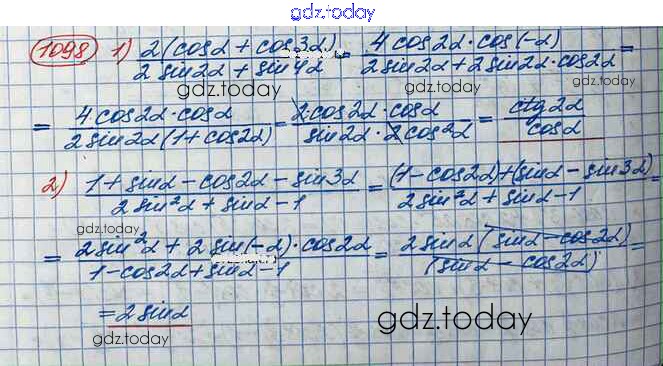 gdz.today
1098 1) 2(cosα + cos3α) / 2 sin2α + sin4α = 4cos2α·cos(-α) / 2 sin2α + 2 sin2α·cos2α =
gdz.today
= 4cos2α·cosα / 2 sin2α(1+cos2α) = 2cos2α·cosα / sin2α·2cos²α = ctg2α / cosα
2) 1+sinα-cos2α-sin3α / 2 sin²α + sinα-1 = (1-cos2α)+(sinα-sin3α) / 2 sin²α + sinα-1 =
gdz.today
= 2 sin²α + 2 sin(-α)·cos2α / 1-cos2α+sinα-1 = 2 sinα (sinα-cos2α) / (sinα-cos2α) =
gdz.today
= 2 sinα
gdz.today